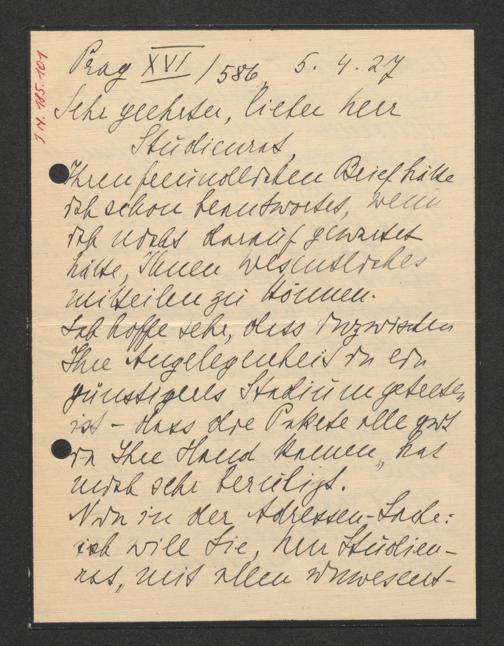 J.N. 185.101
Prag XVI / 586, 5. 4. 27
Sehr geehrter, lieber Herr
Studienrat,
Ihren freundlichen Brief hätte
ich schon beantwortet, wenn
ich nicht darauf gewartet
hätte, Ihnen wesentliches
mitteilen zu können.
Ich hoffe sehr, dass inzwischen
Ihre Angelegenheit in ein
günstigeres Stadium getreten
ist - dass die Pakete alle gut
in Ihre Hand kamen, hat
mich sehr beruhigt.
Nun in der Adressen-Sache:
ich will Sie, Herr Studien-
rat, mit allen unwesent-